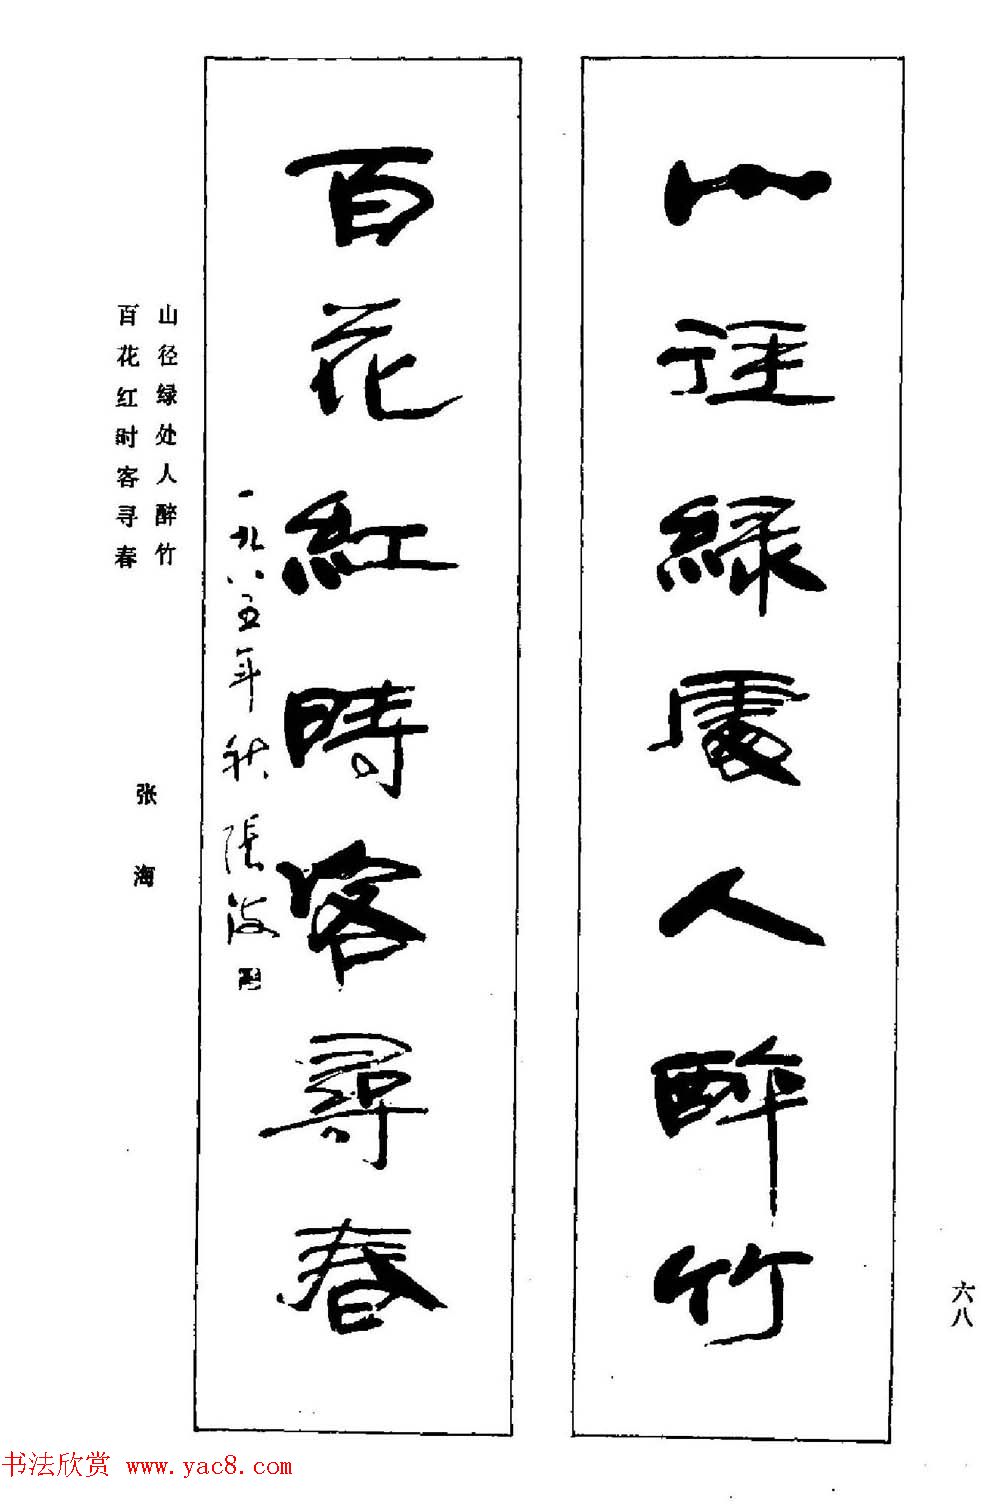 山径緑處人醉竹
百花紅時客尋春
一九八五年秋 張海
山径绿处人醉竹
百花红时客寻春
张海
六八
书法欣赏 www.yac8.com